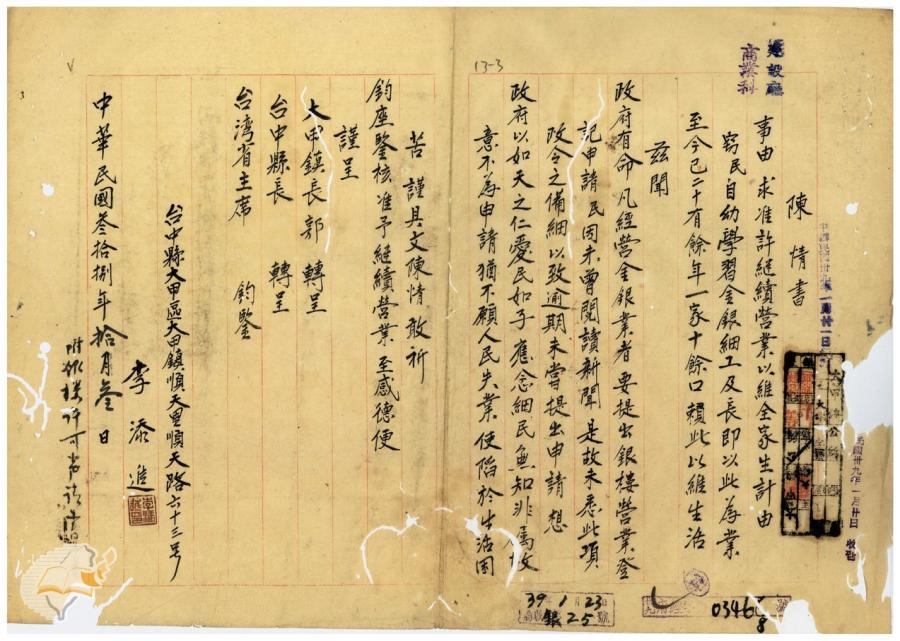 建設廳
商業科
13-3
陳情書
事由 求准許継續營業以維全家生計由
窃民自幼學習金銀細工及長即以此為業
至今已二十有餘年一家十餘口賴此以維生活
茲聞
政府有命凡經營金銀業者要提出銀樓營業登
記申請民因未曾閱讀新聞是故未悉此項
政令之備細以致逾期未嘗提出申請想
政府以如天之仁愛民如子應念細民無知非属故
意不為申請猶不願人民失業使陷於生活困
苦謹具文陳情敢祈
鈞座鑒核准予継續營業至感德便
謹呈
大甲鎮長郭 轉呈
台中縣長 轉呈
台湾省主席 鈞鑒
台中縣大甲區大甲鎮順天里順天路六十三号
李添進
中華民國叁拾捌年拾月叁日
附銀樓許可
民國卅九年一月廿日 收到
39 1月23
銀25號
0346
8